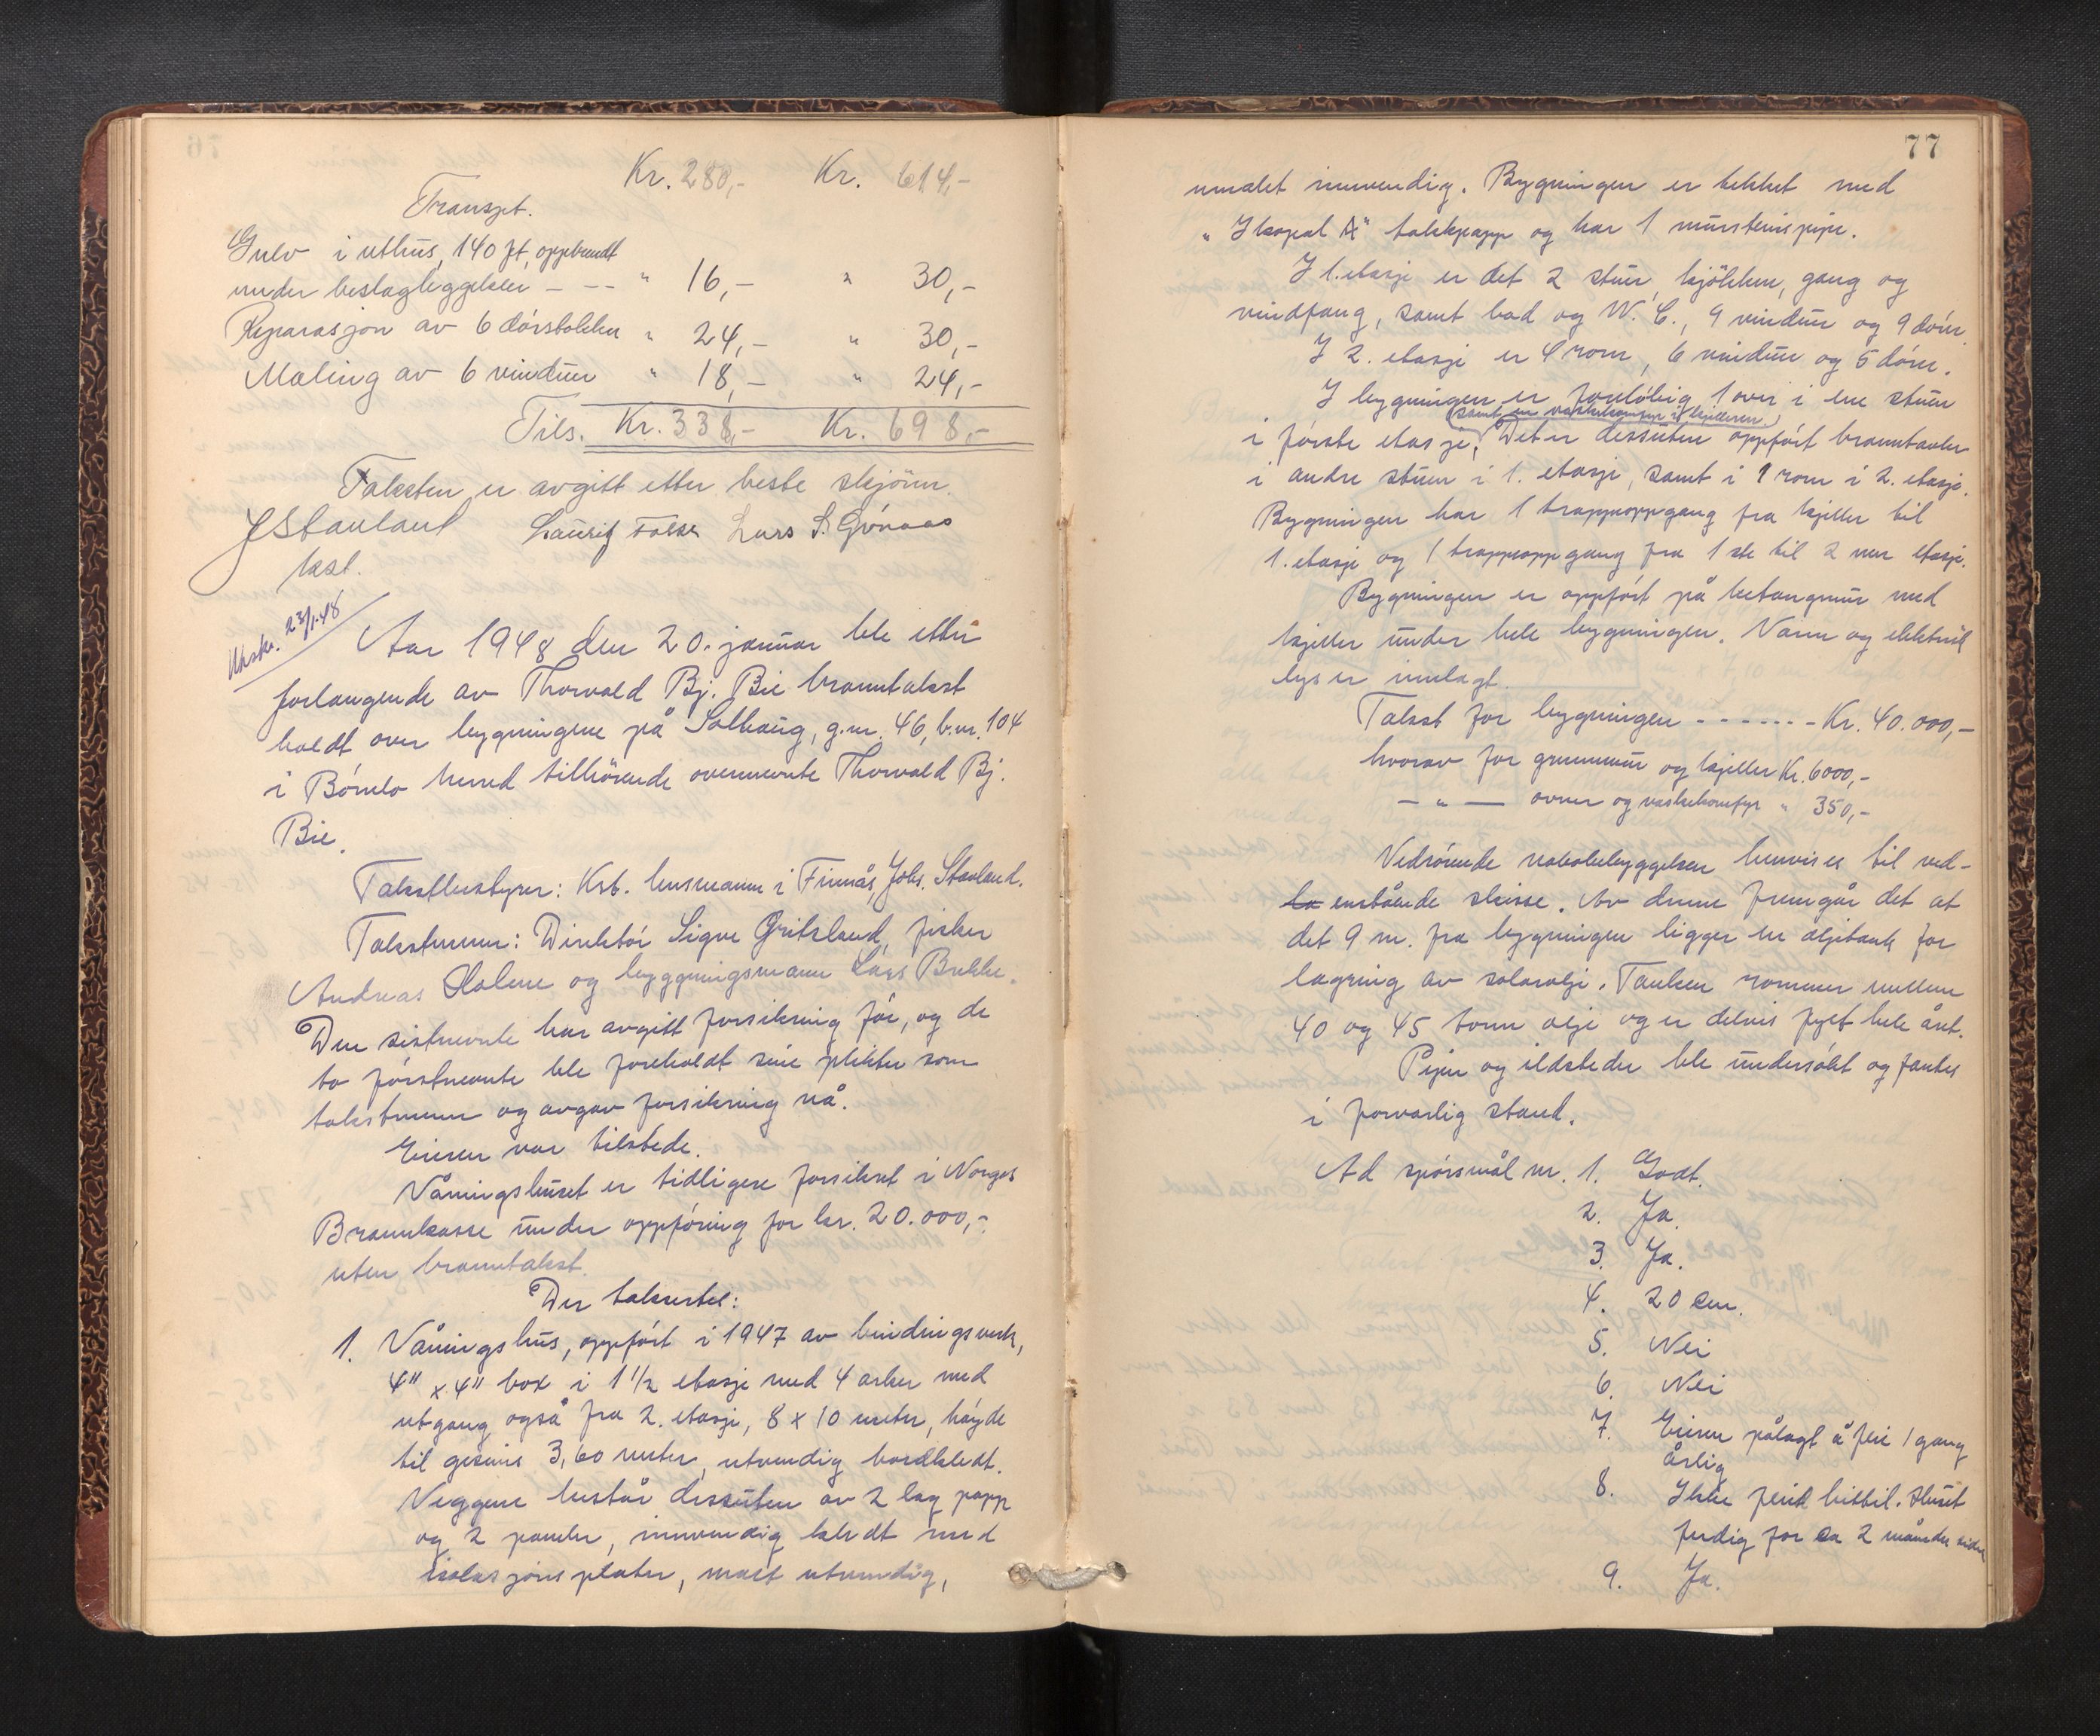 Kr. 280,- Kr. 614,-
Transpt.
Gulv i uthus, 140 ft, oppbrudt
under beslagleggelsen - - - " 16,- " 30,-
Reparasjon av 6 dörstokker " 24,- " 30,-
Maling av 6 vinduer " 18,- " 24,-
Tils. Kr. 338,- Kr. 698,-
Taksten er avgitt etter beste skjönn.
JStautland Lauritz Lars S.
last.
Utskr. 23/1-48
Aar 1948 den 20. januar ble etter
forlangende av Thorvald Bj. Bie branntakst
holdt over bygningene på Solhaug, g.nr. 46, b.nr. 104
i Bömlo herred tilhörende ovennevnte Thorvald Bj.
Bie.
Takstbestyrer: Kst. lensmann i Finnås, Johs. Stautland.
Takstmenn: Direktör Sigve Gritsland, fisker
Andreas Holme og byggningsmann Lars Brekke.
Den sistnevnte har avgitt forsikring för, og de
to förstnevnte ble foreholdt sine plikter som
takstmenn og avgav forsikring nå.
Eieren var tilstede.
Våningshuset er tidligere forsikret i Norges
Brannkasse under oppföring for kr. 20.000,-
uten branntakst.
Der taksertes:
1. Våningshus, oppfört i 1947 av bindingsverk,
4" x 4" box i 1 1/2 etasje med 4 arker med
utgang også fra 2. etasje, 8 x 10 meter, höyde
til gesims 3,60 meter, utvendig bordkledt.
Veggene består dessuten av 2 lag papp
og 2 paneler, innvendig kledt med
isolasjonsplater, malt utvendig,
77
umalt innvendig. Bygningen er tekket med
"Ikopal A" takkpapp og har 1 murstenspipe.
I 1. etasje er det 2 stuer, kjökken, gang og
vindfang, samt bad og W.C., 9 vinduer og 9 dörer.
I 2. etasje er 4 rom, 6 vinduer og 5 dörer.
I bygningen er foreløbig 1 ovn i ene stuen
(samt en vaskekomfyr i kjelleren.)
i förste etasje. Det er dessuten oppfört branntavler
i andre stuen i 1. etasje, samt i 1 rom i 2. etasje.
Bygningen har 1 trappeoppgang fra kjeller til
1. etasje og 1 trappeoppgang fra 1ste til 2nen etasje.
Bygningen er oppfört på betongmur med
kjeller under hele bygningen. Vann og elektrisk
lys er innlagt.
Takst for bygningen - - - - - - - Kr. 40.000,-
hvorav for grunnmur og kjeller Kr. 6000,-
- " - ovner og vaskekomfyr " 350,-
Vedrörende nabobebyggelsen henvises til ved-
la enstående skisse. Av denne fremgår det at
det 9 m. fra bygningen ligger en oljetank for
lagring av solarolje. Tanken rommer mellem
40 og 45 tonn olje og er delvis fylt hele året.
Piper og ildsteder ble undersökt og fantes
i forsvarlig stand.
Ad spörsmål nr. 1. Godt.
2. Ja.
3. Ja.
4. 20 cm.
5. Nei
6. Nei
7. Eieren pålagt å feie 1 gang
årlig
8. Ikke feiet hittil. Huset
ferdig for ca 2 måneder siden
9. Ja.